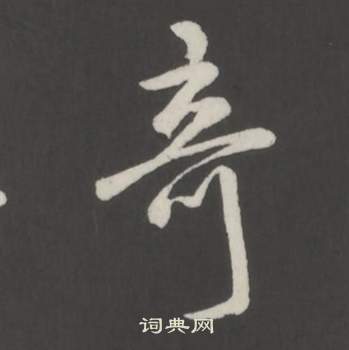 奇
词典网